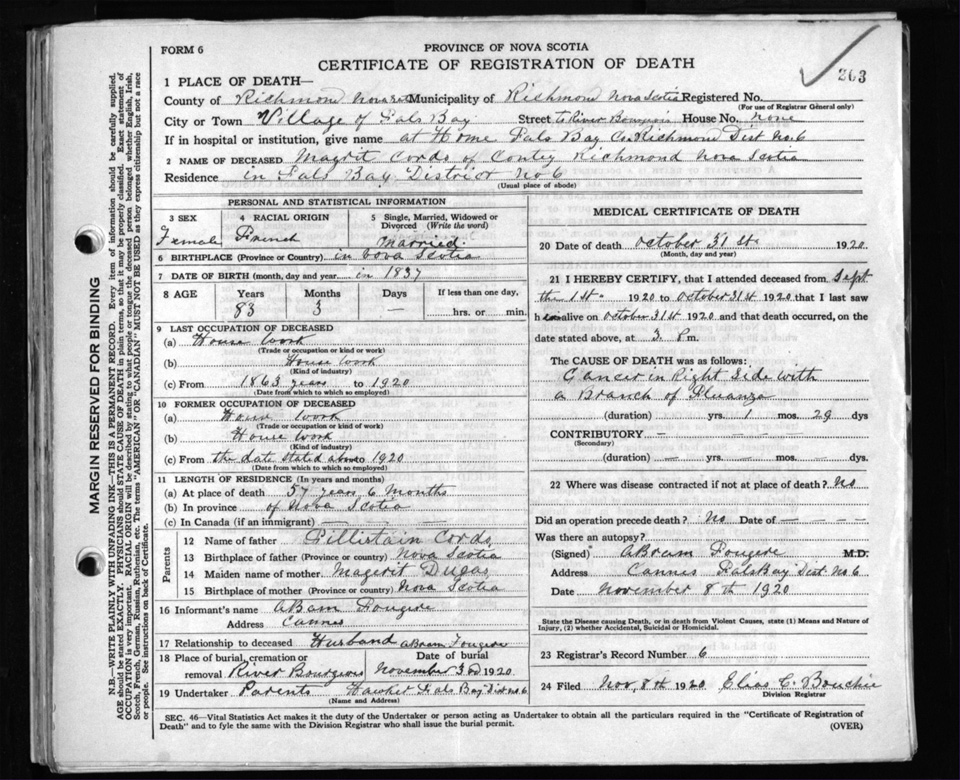 FORM 6
PROVINCE OF NOVA SCOTIA
CERTIFICATE OF REGISTRATION OF DEATH
263
MARGIN RESERVED FOR BINDING
N.B.—WRITE PLAINLY WITH UNFADING INK—THIS IS A PERMANENT RECORD. Every item of information should be carefully supplied.
AGE should be stated EXACTLY. PHYSICIANS should STATE CAUSE OF DEATH in plain terms, so that it may be properly classified. Exact statement of
OCCUPATION is very important. RACIAL ORIGIN will be described by stating to what people or tongue the deceased person belonged whether English, Irish,
Scotch, French, German, Russian, Ruthenian, etc. The terms "AMERICAN" OR "CANADIAN" MUST NOT BE USED as they express citizenship but not a race
or people. See instructions on back of Certificate.
1 PLACE OF DEATH—
County of Richmond Nova Municipality of Richmond Nova Scotia Registered No.
(For use of Registrar General only)
City or Town Village of Fals Bay Street to River Bourgeois House No. none
If in hospital or institution, give name at Home Fals Bay Co Richmond Dist No. 6
2 NAME OF DECEASED Magrit Cords of Conty Richmond Nova Scotia
Residence in Fals Bay District No 6
(Usual place of abode)
PERSONAL AND STATISTICAL INFORMATION
3 SEX Female
4 RACIAL ORIGIN French
5 Single, Married, Widowed or Divorced (Write the word) Married
6 BIRTHPLACE (Province or Country) in Nova Scotia
7 DATE OF BIRTH (month, day and year) in 1837
8 AGE Years Months Days If less than one day,
83 3 — hrs. or min.
9 LAST OCCUPATION OF DECEASED
(a) House Work
(Trade or occupation or kind or work)
(b) House Work
(Kind of industry)
(c) From 1863 years to 1920
(Date from which to which so employed)
10 FORMER OCCUPATION OF DECEASED
(a) House Work
(Trade or occupation or kind of work)
(b) House Work
(Kind of industry)
(c) From the date stated above to 1920
(Date from which to which so employed)
11 LENGTH OF RESIDENCE (In years and months)
(a) At place of death 57 years 6 Months
(b) In province of Nova Scotia
(c) In Canada (if an immigrant) — — —
Parents
12 Name of father Cords
13 Birthplace of father (Province or country) Nova Scotia
14 Maiden name of mother Magerit Dugas
15 Birthplace of mother (Province or country) Nova Scotia
16 Informant's name ABam Fougere
Address Cannes
17 Relationship to deceased Husband ABram Fougere
18 Place of burial, cremation or removal River Bourgeois
Date of burial November 3rd 1920
19 Undertaker Parents Fals Bay Dist no. 6
(Name and Address)
MEDICAL CERTIFICATE OF DEATH
20 Date of death October 31st 1920
(Month, day and year)
21 I HEREBY CERTIFY, that I attended deceased from Sept
the 1st 1920 to October 31st 1920 that I last saw
her alive on October 31st 1920 and that death occurred, on the
date stated above, at 3 P m.
The CAUSE OF DEATH was as follows:
Cancer in Right Side with
a Branch of Fluanza
(duration) yrs. 1 mos. 29 dys
CONTRIBUTORY — —
(Secondary)
(duration) — yrs. — mos. — dys
22 Where was disease contracted if not at place of death? No
Did an operation precede death? No Date of — — —
Was there an autopsy?
(Signed) ABram Fougere M.D.
Address Cannes FalsBay Dist. No 6
Date November 8th 1920
State the Disease causing Death, or in death from Violent Causes, state (1) Means and Nature of
Injury, (2) whether Accidental, Suicidal or Homicidal.
23 Registrar's Record Number 6
24 Filed Nov. 8th 1920 Elias C. Bouchie
Division Registrar
SEC. 46—Vital Statistics Act makes it the duty of the Undertaker or person acting as Undertaker to obtain all the particulars required in the "Certificate of Registration of
Death" and to fyle the same with the Division Registrar who shall issue the burial permit.
(OVER)